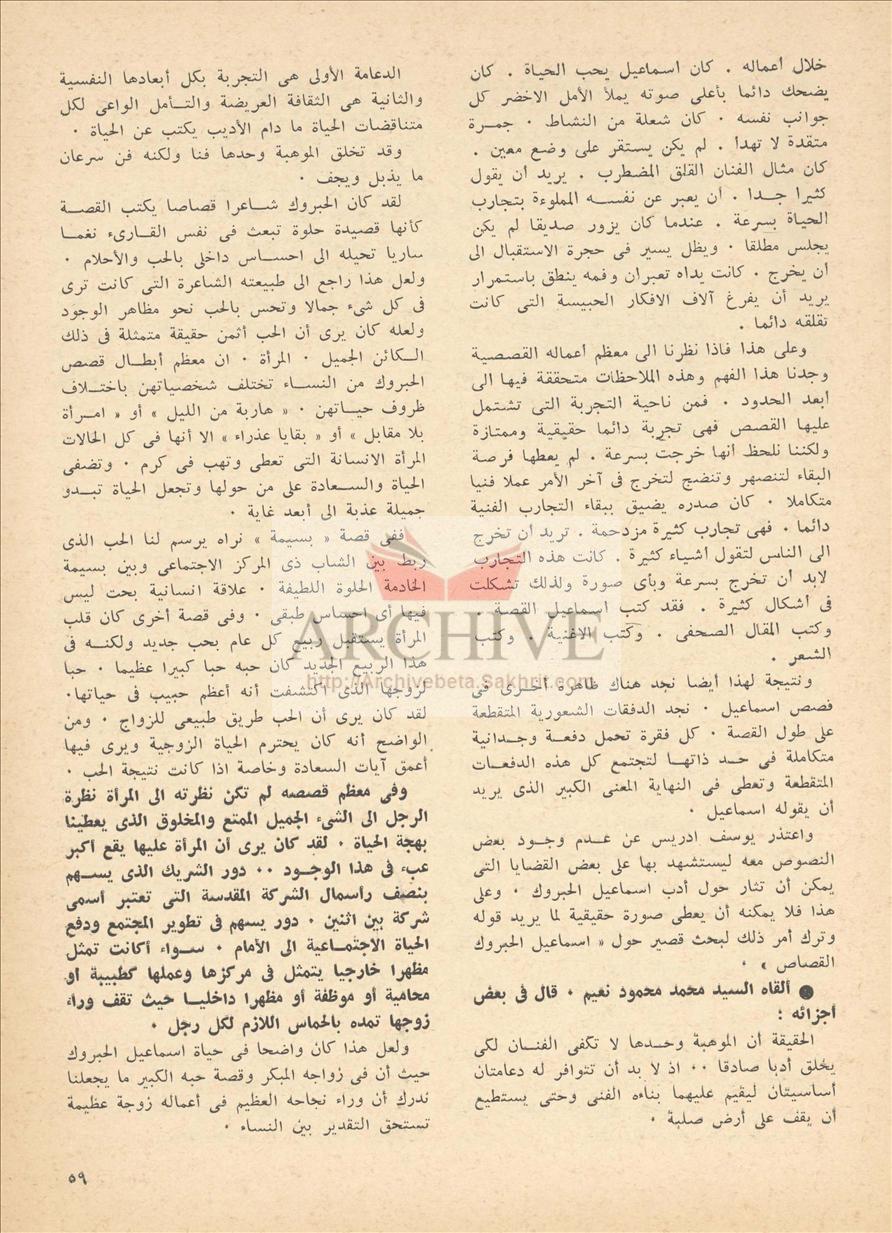 خلال أعماله . كان اسماعيل يحب الحياة . كان
يضحك دائما بأعلى صوته يملأ الأمل الاخضر كل
جوانب نفسه . كان شعلة من النشاط . جمرة
متقدة لا تهدأ . لم يكن يستقر على وضع معين .
كان مثال الفنان القلق المضطرب . يريد أن يقول
كثيرا جدا . أن يعبر عن نفسه المملوءة بتجارب
الحياة بسرعة . عندما كان يزور صديقا لم يكن
يجلس مطلقا . ويظل يسير فى حجرة الاستقبال الى
أن يخرج . كانت يداه تعبران وفمه ينطق باستمرار
يريد أن يفرغ آلاف الافكار الحبيسة التى كانت
تقلقه دائما .
وعلى هذا فاذا نظرنا الى معظم أعماله القصصية
وجدنا هذا الفهم وهذه الملاحظات متحققة فيها الى
أبعد الحدود . فمن ناحية التجربة التى تشتمل
عليها القصص فهى تجربة دائما حقيقية وممتازة
ولكننا نلحظ أنها خرجت بسرعة . لم يعطها فرصة
البقاء لتنصهر وتنضج لتخرج فى آخر الأمر عملا فنيا
متكاملا . كان صدره يضيق ببقاء التجارب الفنية
دائما . فهى تجارب كثيرة مزدحمة . تريد أن تخرج
الى الناس لتقول أشياء كثيرة . كانت هذه التجارب
لابد أن تخرج بسرعة وبأى صورة ولذلك تشكلت
فى أشكال كثيرة . فقد كتب اسماعيل القصة .
وكتب المقال الصحفى . وكتب الاغنية . وكتب
الشعر .
ونتيجة لهذا أيضا نجد هناك ظاهرة أخرى فى
قصص اسماعيل . نجد الدفقات الشعورية المتقطعة
على طول القصة . كل فقرة تحمل دفعة وجدانية
متكاملة فى حد ذاتها لتجتمع كل هذه الدفعات
المتقطعة وتعطى فى النهاية المعنى الكبير الذى يريد
أن يقوله اسماعيل .
واعتذر يوسف ادريس عن عدم وجود بعض
النصوص معه ليستشهد بها على بعض القضايا التى
يمكن أن تثار حول أدب اسماعيل الحبروك . وعلى
هذا فلا يمكنه أن يعطى صورة حقيقية لما يريد قوله
وترك أمر ذلك لبحث قصير حول « اسماعيل الحبروك
القصاص » .
● ألقاه السيد محمد محمود نعيم . قال فى بعض
أجزائه :
الحقيقة أن الموهبة وحدها لا تكفى الفنان لكى
يخلق أدبا صادقا .. اذ لا بد أن تتوافر له دعامتان
أساسيتان ليقيم عليهما بناءه الفنى وحتى يستطيع
أن يقف على أرض صلبة .
الدعامة الأولى هى التجربة بكل أبعادها النفسية
والثانية هى الثقافة العريضة والتأمل الواعى لكل
متناقضات الحياة ما دام الأديب يكتب عن الحياة .
وقد تخلق الموهبة وحدها فنا ولكنه فن سرعان
ما يذبل ويجف .
لقد كان الحبروك شاعرا قصاصا يكتب القصة
كأنها قصيدة حلوة تبعث فى نفس القارىء نغما
ساريا تحيله الى احساس داخلى بالحب والأحلام .
ولعل هذا راجع الى طبيعته الشاعرة التى كانت ترى
فى كل شىء جمالا وتحس بالحب نحو مظاهر الوجود
ولعله كان يرى أن الحب أثمن حقيقة متمثلة فى ذلك
الكائن الجميل . المرأة . ان معظم أبطال قصص
الحبروك من النساء تختلف شخصياتهن باختلاف
ظروف حياتهن . « هاربة من الليل » أو « امرأة
بلا مقابل » أو « بقايا عذراء » الا أنها فى كل الحالات
المرأة الانسانة التى تعطى وتهب فى كرم . وتضفى
الحياة والسعادة على من حولها وتجعل الحياة تبدو
جميلة عذبة الى أبعد غاية .
ففى قصة « بسيمة » نراه يرسم لنا الحب الذى
ربط بين الشاب ذى المركز الاجتماعى وبين بسيمة
الخادمة الحلوة اللطيفة . علاقة انسانية بحت ليس
فيها أى احساس طبقى . وفى قصة أخرى كان قلب
المرأة يستقبل ربيع كل عام بحب جديد ولكنه فى
هذا الربيع الجديد كان حبه حبا كبيرا عظيما . حبا
لزوجها الذى اكتشفت أنه أعظم حبيب فى حياتها.
لقد كان يرى أن الحب طريق طبيعى للزواج . ومن
الواضح أنه كان يحترم الحياة الزوجية ويرى فيها
أعمق آيات السعادة وخاصة اذا كانت نتيجة الحب .
وفى معظم قصصه لم تكن نظرته الى المرأة نظرة
الرجل الى الشىء الجميل الممتع والمخلوق الذى يعطينا
بهجة الحياة . لقد كان يرى أن المرأة عليها يقع أكبر
عبء فى هذا الوجود .. دور الشريك الذى يسهم
بنصف رأسمال الشركة المقدسة التى تعتبر أسمى
شركة بين اثنين . دور يسهم فى تطوير المجتمع ودفع
الحياة الاجتماعية الى الأمام . سواء أكانت تمثل
مظهرا خارجيا يتمثل فى مركزها وعملها كطبيبة أو
محامية أو موظفة أو مظهرا داخليا حيث تقف وراء
زوجها تمده بالحماس اللازم لكل رجل .
ولعل هذا كان واضحا فى حياة اسماعيل الحبروك
حيث أن فى زواجه المبكر وقصة حبه الكبير ما يجعلنا
ندرك أن وراء نجاحه العظيم فى أعماله زوجة عظيمة
تستحق التقدير بين النساء .
٥٩
ARCHIVE
http://Archivebeta.Sakhrit.com